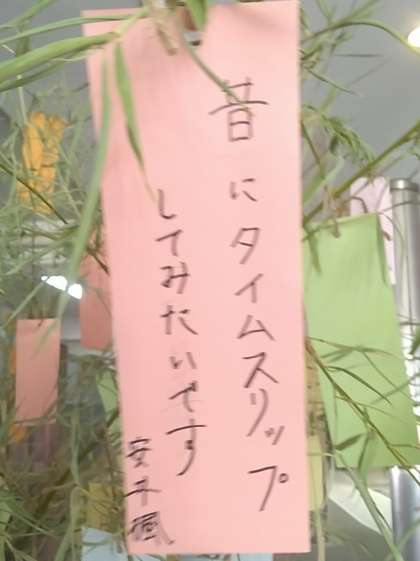 昔にタイムスリップ
してみたいです
安井楓